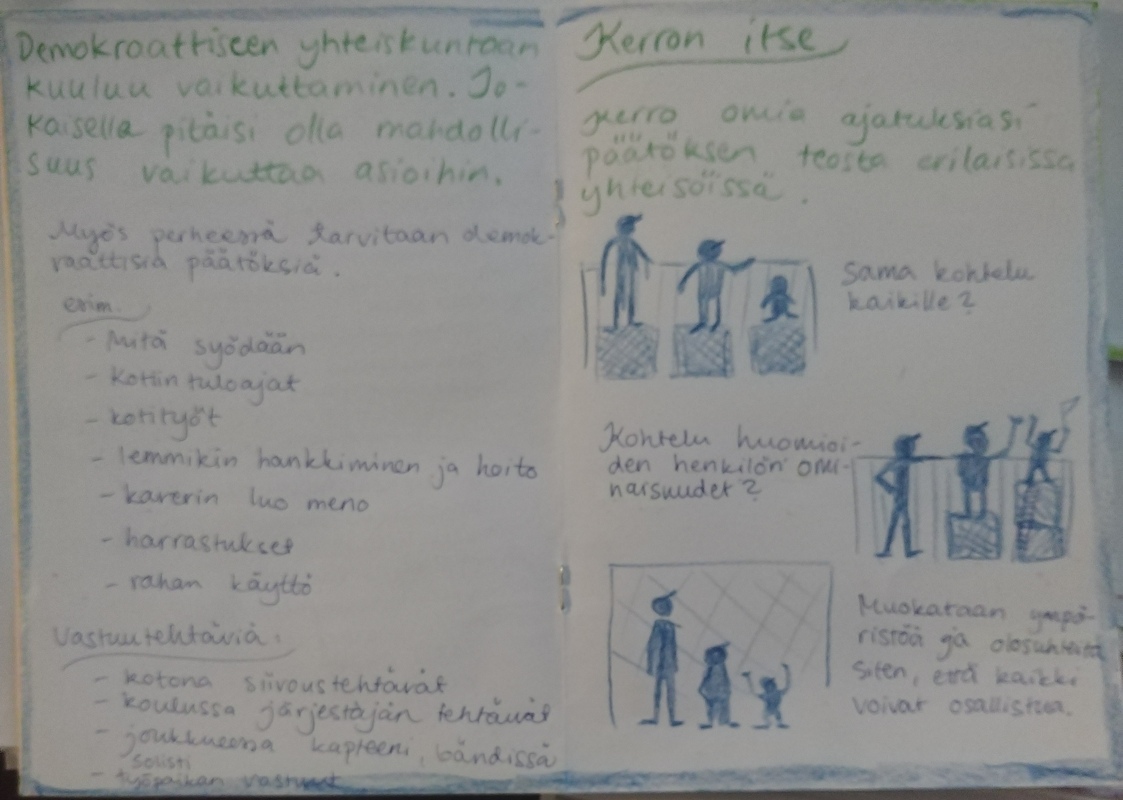 Demokraattiseen yhteiskuntaan
kuuluu vaikuttaminen. Jo-
kaisella pitäisi olla mahdolli-
suus vaikuttaa asioihin.
Myös perheessä tarvitaan demok-
raattisia päätöksiä.
esim.
- Mitä syödään
- Kotiin tuloajat
- kotityöt
- lemmikin hankkiminen ja hoito
- kaverin luo meno
- harrastukset
- rahan käyttö
Vastuutehtäviä:
- kotona siivoustehtävät
- koulussa järjestäjän tehtävät
- joukkueessa kapteeni, bändissä
solisti
- työpaikan vastuut
Kerron itse
Kerro omia ajatuksiasi
päätöksen teosta erilaisissa
yhteisöissä.
Sama kohtelu
kaikille?
Kohtelu huomioi-
den henkilön omi-
naisuudet?
Muokataan ympä-
ristöä ja olosuhteita
siten, että kaikki
voivat osallistua.